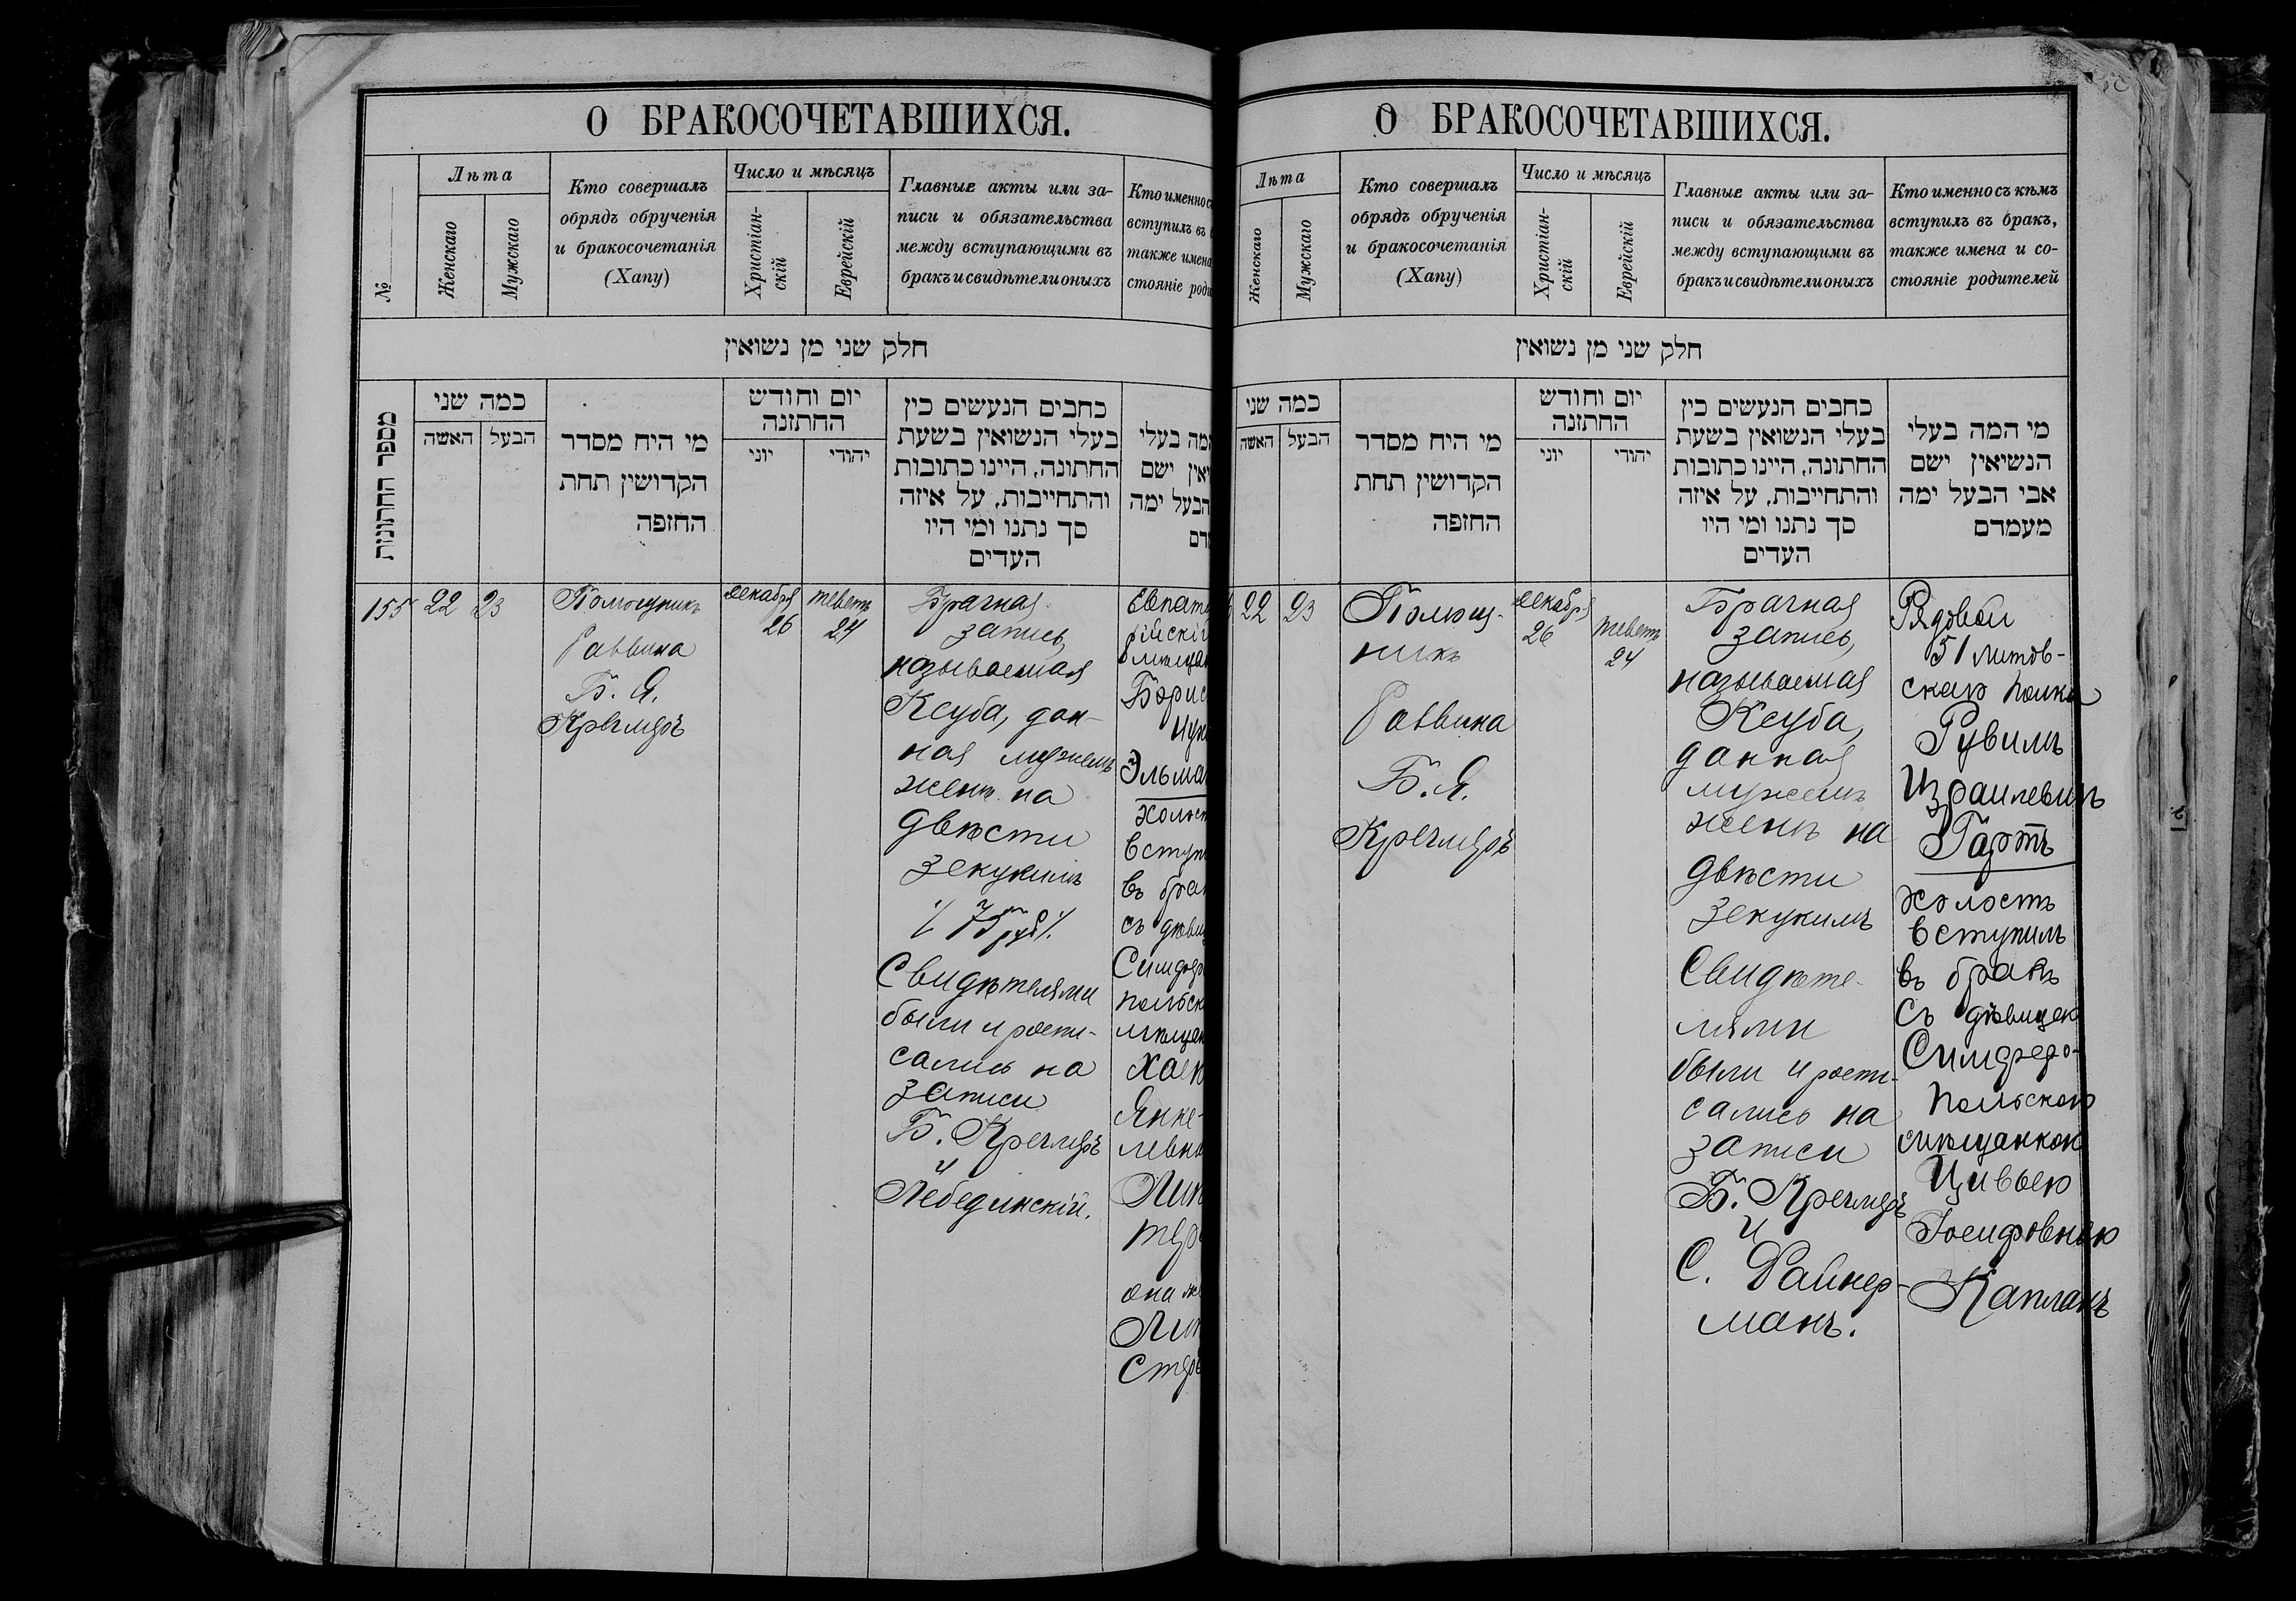 О БРАКОСОЧЕТАВШИХСЯ.
№
Лѣта
Женскаго
Мужскаго
Кто совершалъ
обрядъ обрученія
и бракосочетанія
(Хапу)
Число и мѣсяцъ
Христіан-
скій
Еврейскій
Главные акты или за-
писи и обязательства
между вступающими въ
бракъ и свидѣтели оныхъ
Кто именно съ
вступилъ въ
также имена
стояніе роди
חלק שני מן נשואין
מספר החתונות
כמה שני
האשה
הבעל
מי היח מסדר
הקדושין תחת
החזפה
יום וחודש
החתזנה
יוני
יהודי
כחבים הנעשים כין
בעלי הנשואין בשעת
החתונה, היינו כתובות
והתחייבות, על איזה
סך נתנו ומי היו
העדים
המה בעלי
יאין ישם
הבעל ימה
155
22
23
Помощникъ
Раввина
Б. Я.
Кречмеръ
декабря
26
теветъ
24
Брачная
запись,
называемая
Ксуба, дан-
ная мужемъ
женѣ на
двѣсти
зекукимъ
75 руб.
Свидѣтелями
были и роспи-
сались на
записи
Б. Кречмеръ
и
Лебединскій.
Евпато
рійскій
мѣщан
Борис
Эльма
холост
вступи
въ бра
съ дѣви
Симферо
польск
мѣщан
Хаею
Янке-
левно
она же
О БРАКОСОЧЕТАВШИХСЯ.
Лѣта
Женскаго
Мужскаго
Кто совершалъ
обрядъ обрученія
и бракосочетанія
(Хапу)
Число и мѣсяцъ
Христіан-
скій
Еврейскій
Главные акты или за-
писи и обязательства
между вступающими въ
бракъ и свидѣтели оныхъ
Кто именно съ кѣмъ
вступилъ въ бракъ,
также имена и со-
стояніе родителей
חלק שני מן נשואין
כמה שני
האשה
הבעל
מי היח מסדר
הקדושין תחת
החזפה
יום וחודש
החתזנה
יוני
יהודי
כחבים הנעשים כין
בעלי הנשואין בשעת
החתונה, היינו כתובות
והתחייבות, על איזה
סך נתנו ומי היו
העדים
מי המה בעלי
הנשיאין ישם
אבי הבעל ימה
מעמדם
22
23
Помощ-
никъ
Раввина
Б. Я.
Кречмеръ
декабря
26
теветъ
24
Брачная
запись,
называемая
Ксуба,
данная
мужемъ
женѣ на
двѣсти
зекукимъ
Свидѣте-
лями
были и роспи-
сались на
записи
Б. Кречмеръ
и
С. Файнер-
манъ.
Рядовой
51 Литов-
скаго полка
Рувимъ
Израилевичъ
Гартъ
холостъ
вступилъ
въ бракъ
съ дѣвицею
Симферо-
польскою
мѣщанкою
Цивьею
Іосифовною
Капланъ